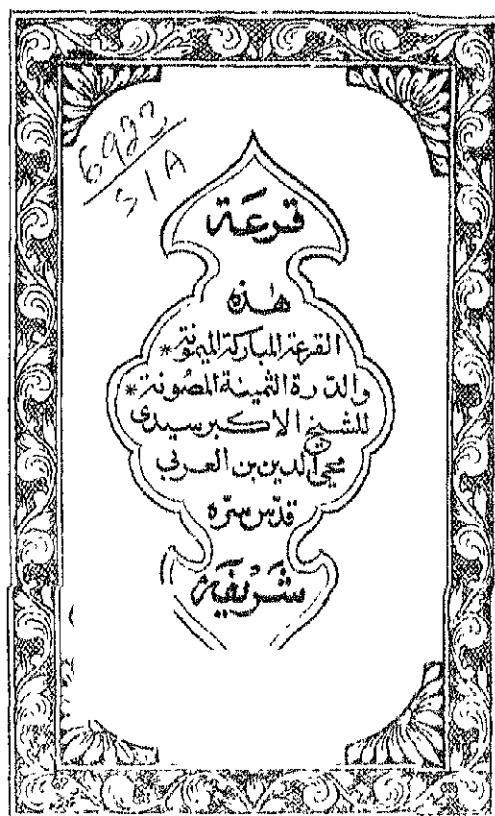 6922
S I A
قرعة
هذه
القرعة المباركة الميمونة *
والدرة الثمينة المصونة *
للشيخ الاكبر سيدى
محي الدين بن العربي
قدس سره
شريفه